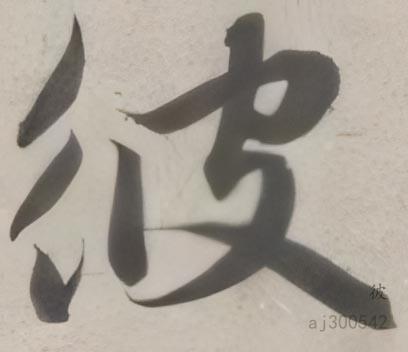 彼
彼
aj300542